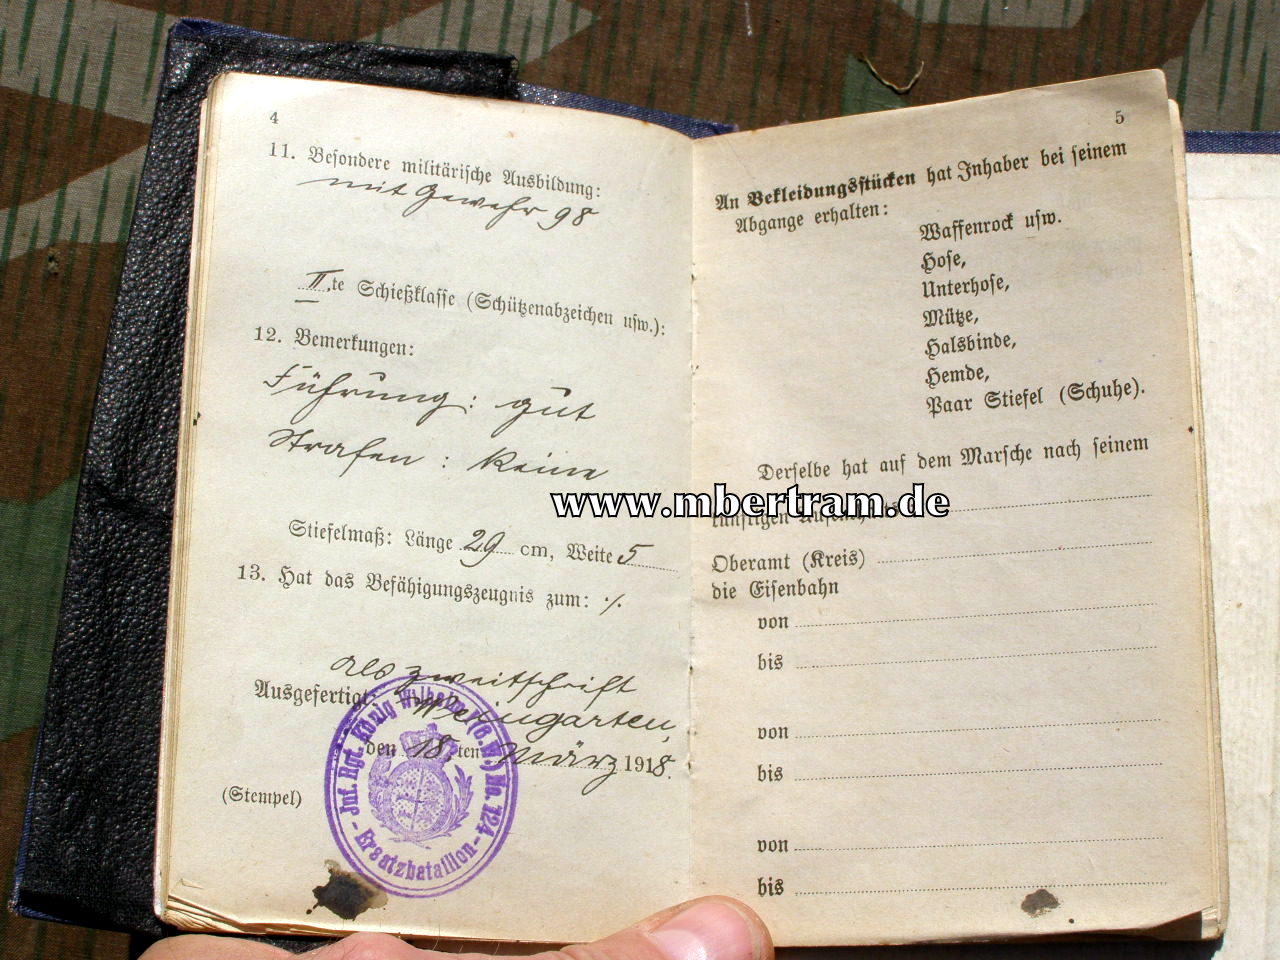 4
11. Besondere militärische Ausbildung:
mit Gewehr 98
II.te Schießklasse (Schützenabzeichen usw.):
12. Bemerkungen:
Führung: gut
Strafen: keine
Stiefelmaß: Länge 29 cm, Weite 5
13. Hat das Befähigungszeugnis zum: ./.
als Zweitschrift
Ausgefertigt: Weingarten,
den 18.ten März 1918.
(Stempel)
Inf. Rgt. König Wilhelm I (6. W.) No. 124
- Ersatzbataillon -
5
An Bekleidungsstücken hat Inhaber bei seinem
Abgange erhalten:
Waffenrock usw.
Hose,
Unterhose,
Mütze,
Halsbinde,
Hemde,
Paar Stiefel (Schuhe).
Derselbe hat auf dem Marsche nach seinem
www.mbertram.de
Oberamt (Kreis)
die Eisenbahn
von
bis
von
bis
von
bis